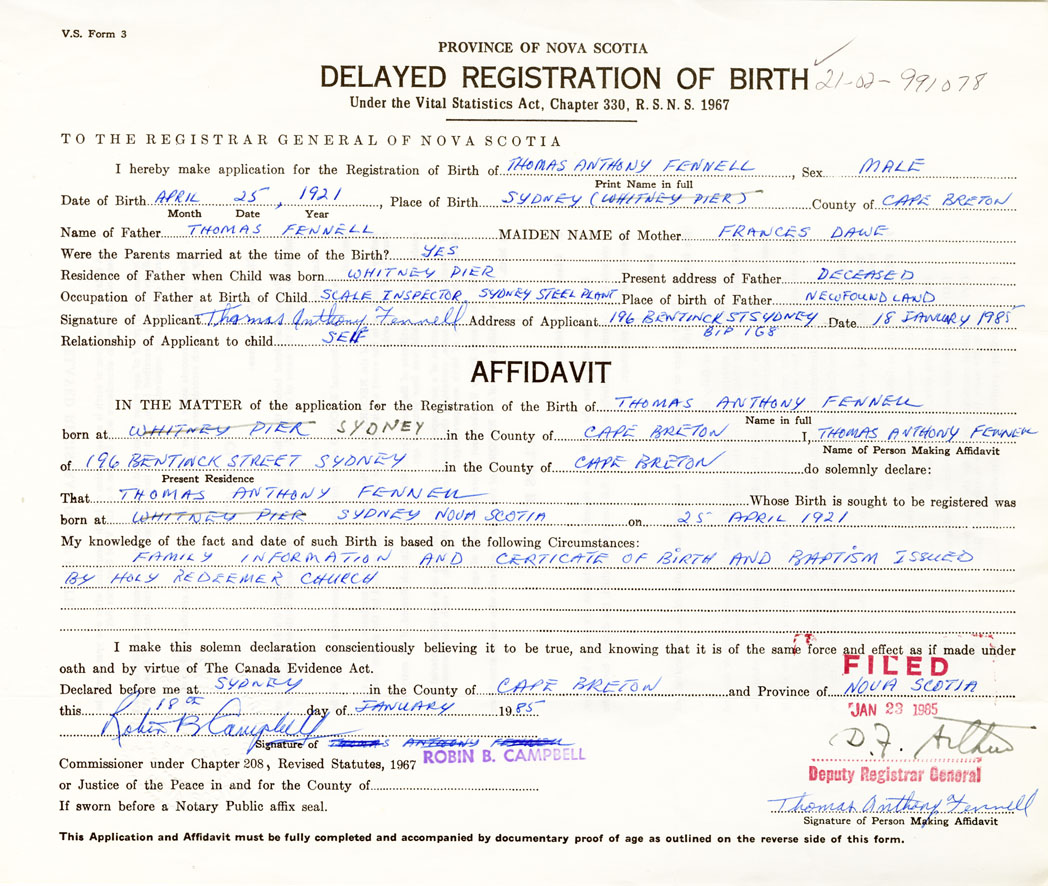 V.S. Form 3
PROVINCE OF NOVA SCOTIA
DELAYED REGISTRATION OF BIRTH 21-02-991078
Under the Vital Statistics Act, Chapter 330, R.S.N.S. 1967
TO THE REGISTRAR GENERAL OF NOVA SCOTIA
I hereby make application for the Registration of Birth of THOMAS ANTHONY FENNELL, Sex MALE
Print Name in full
Date of Birth APRIL 25, 1921, Place of Birth SYDNEY (WHITNEY PIER) County of CAPE BRETON
Month Date Year
Name of Father THOMAS FENNELL MAIDEN NAME of Mother FRANCES DAWE
Were the Parents married at the time of the Birth? YES
Residence of Father when Child was born WHITNEY PIER Present address of Father DECEASED
Occupation of Father at Birth of Child SCALE INSPECTOR, SYDNEY STEEL PLANT Place of birth of Father NEWFOUNDLAND
Signature of Applicant Thomas Anthony Fennell Address of Applicant 196 BENTINCK ST SYDNEY Date 18 JANUARY 1985
B1P 1G8
Relationship of Applicant to child SELF
AFFIDAVIT
IN THE MATTER of the application for the Registration of the Birth of THOMAS ANTHONY FENNELL
Name in full
born at WHITNEY PIER SYDNEY in the County of CAPE BRETON I, THOMAS ANTHONY FENNELL
Name of Person Making Affidavit
of 196 BENTINCK STREET SYDNEY in the County of CAPE BRETON do solemnly declare:
Present Residence
That THOMAS ANTHONY FENNELL Whose Birth is sought to be registered was
born at WHITNEY PIER SYDNEY NOVA SCOTIA on 25 APRIL 1921
My knowledge of the fact and date of such Birth is based on the following Circumstances:
FAMILY INFORMATION AND CERTICATE OF BIRTH AND BAPTISM ISSUED
BY HOLY REDEEMER CHURCH
I make this solemn declaration conscientiously believing it to be true, and knowing that it is of the same force and effect as if made under
oath and by virtue of The Canada Evidence Act.
FILED
Declared before me at SYDNEY in the County of CAPE BRETON and Province of NOVA SCOTIA
this 18th day of JANUARY 1985
JAN 23 1985
Robin B Campbell
Signature of THOMAS ANTHONY FENNELL
D.F.
ROBIN B. CAMPBELL
Commissioner under Chapter 208, Revised Statutes, 1967
Deputy Registrar General
or Justice of the Peace in and for the County of
If sworn before a Notary Public affix seal.
Thomas Anthony Fennell
Signature of Person Making Affidavit
This Application and Affidavit must be fully completed and accompanied by documentary proof of age as outlined on the reverse side of this form.